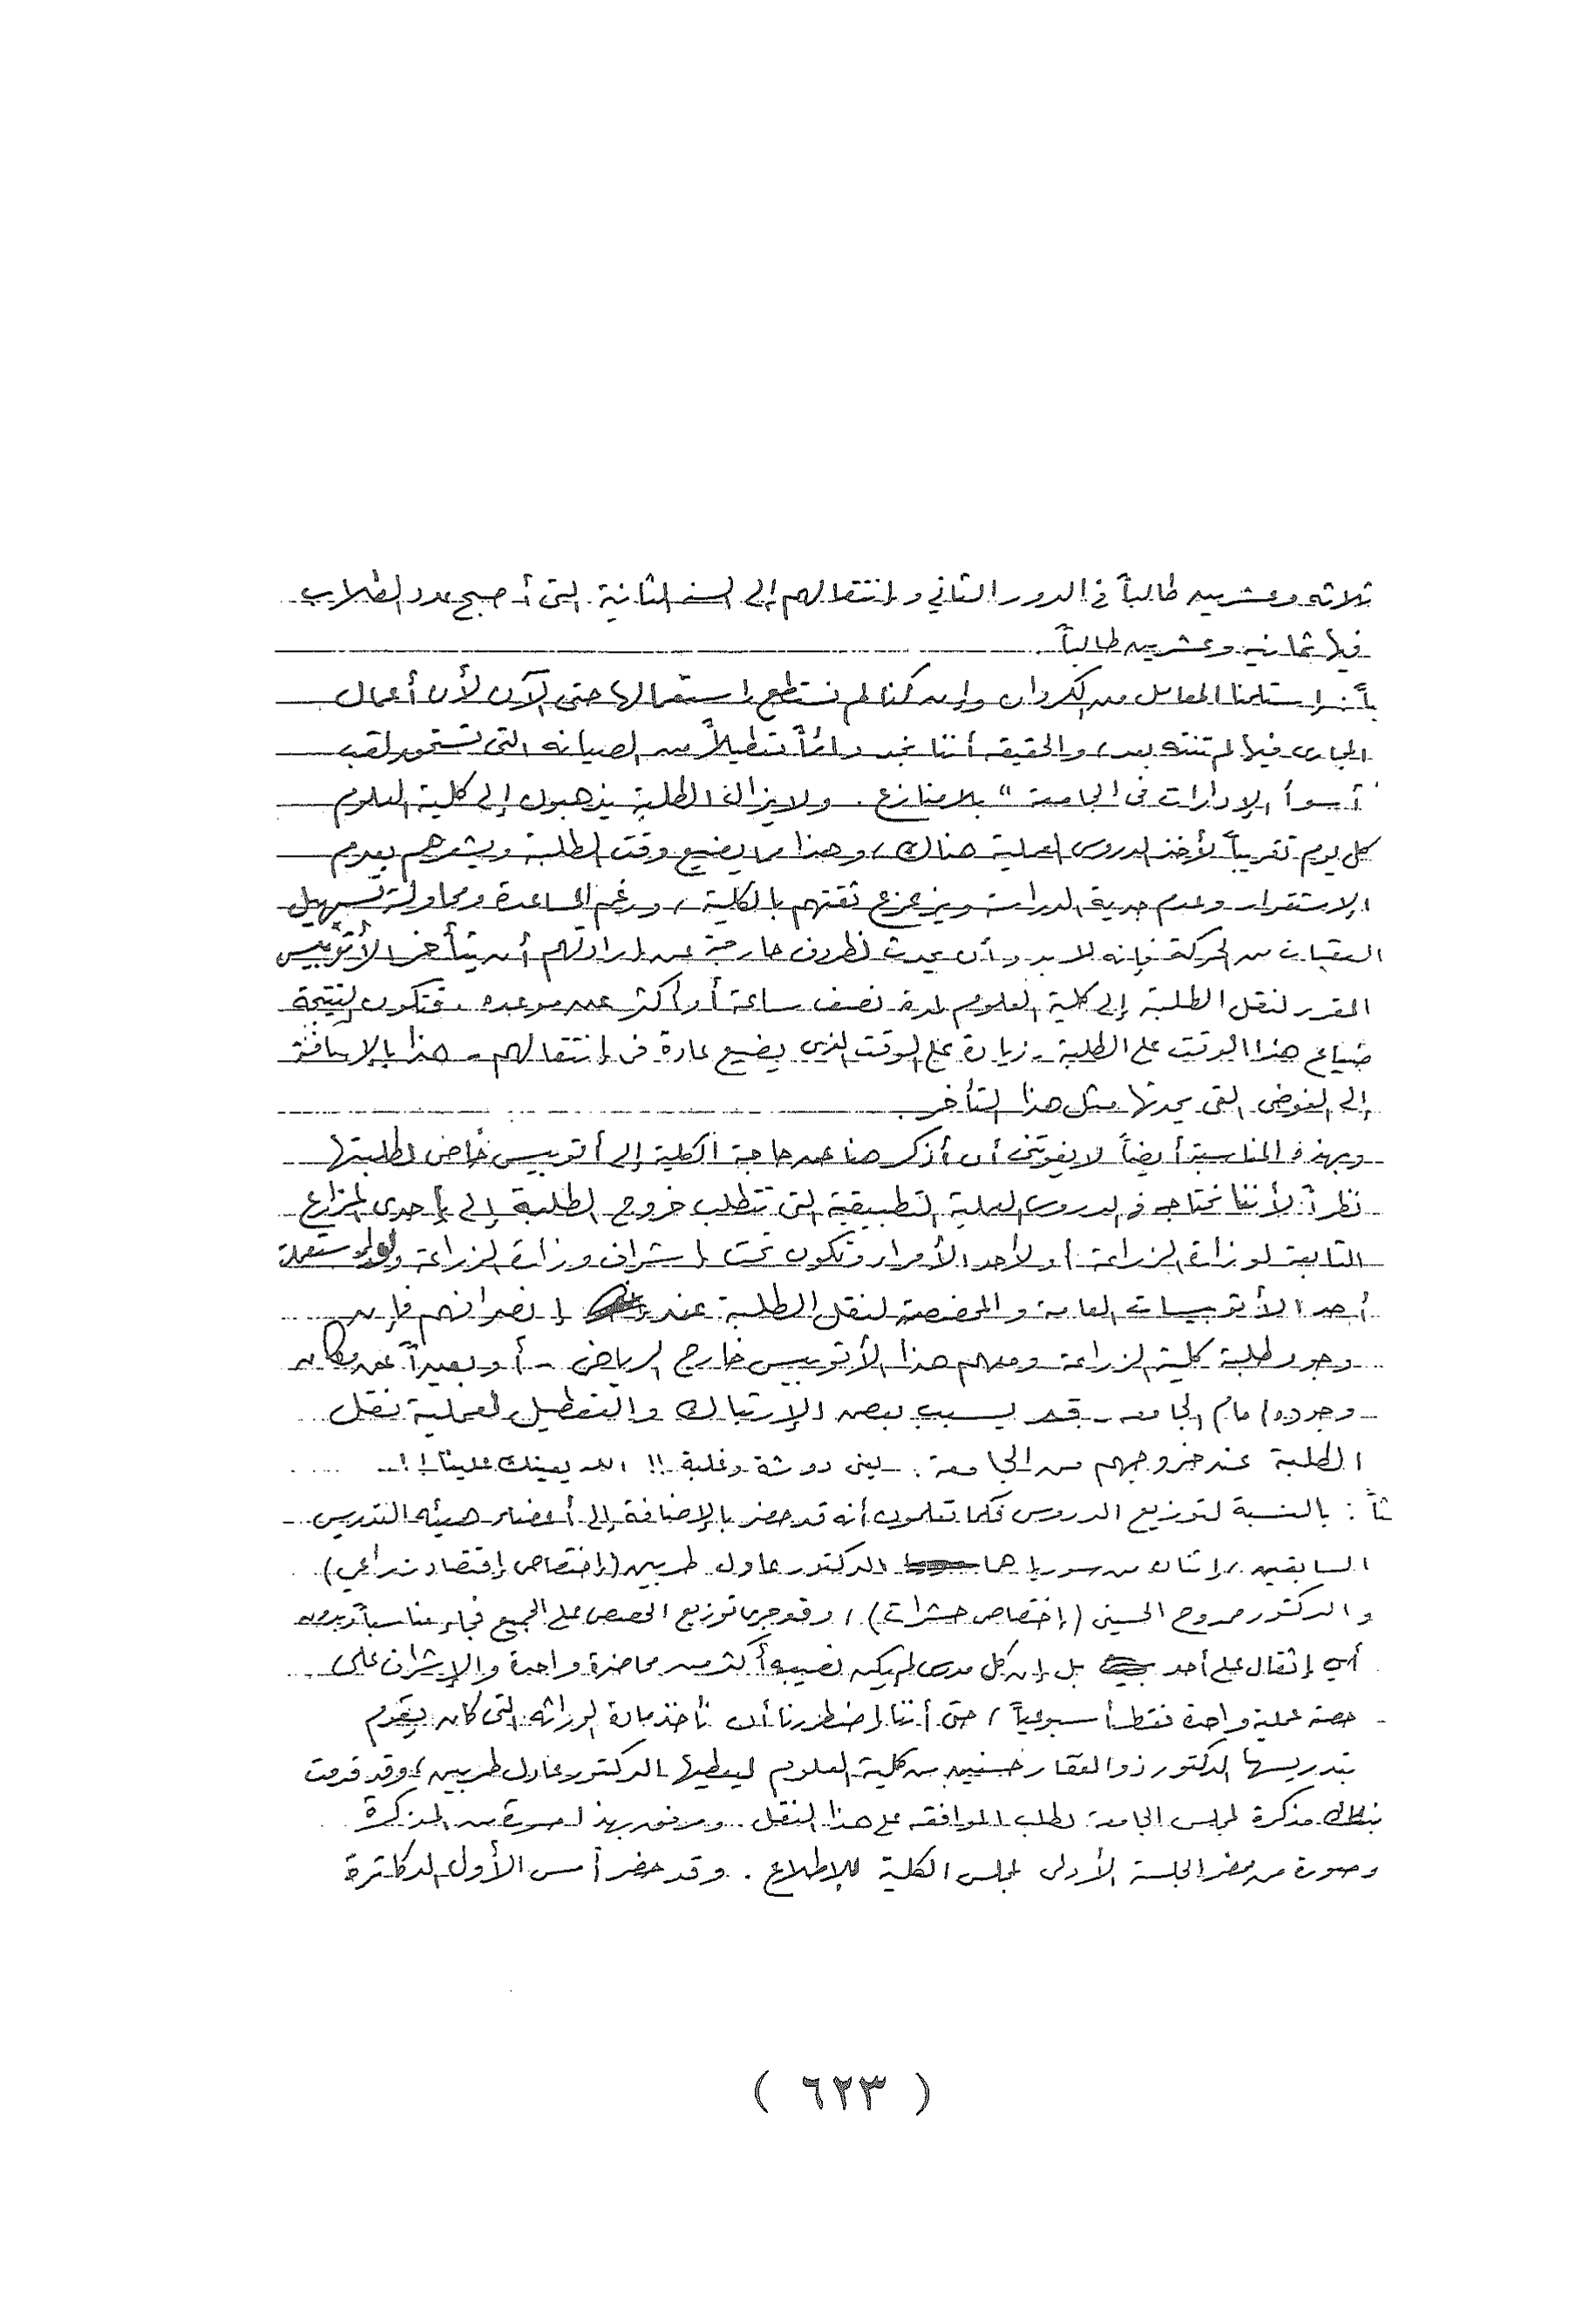 ثلاثه وعشرين طالباً في الدور الثاني وانتقالهم إلى السنة الثانية التى أصبح عدد الطلاب
فيها ثمانيه وعشرين طالباً .
ياً : استلمنا المعامل من الكروان وإن كنا لم نستطع استعمالها حتى الآن لأن أعمال
المجارى فيها لم تنته بعد، والحقيقه أننا نجد دائماً تعطيلاً من الصيانه التى تستحق لقب
" أسوأ الإدارات فى الجامعة " بلا منازع . ولا يزال الطلبة يذهبون إلى كلية العلوم
كل يوم تقريباً لأخذ الدروس العملية هناك، وهذا مما يضيع وقت الطلبة ويشعرهم بعدم
الإستقرار وعدم جدية الدراسة ويزعزع ثقتهم بالكلية، ورغم المساعدة ومحاولة تسهيل
العقبات من الحركة فإنه لا بد وأن يحدث لظروف خارجة عن إرادتهم أن يتأخر الأتوبيس
المقرر لنقل الطلبة إلى كلية العلوم لمدة نصف ساعة أو أكثر عن موعده . فتكون النتيجة
ضياع هذا الوقت على الطلبة - زيادة على الوقت الذي يضيع عادة فى إنتقالهم - هذا بالإضافة
إلى الفوضى التى يحدثها مثل هذا التأخر .
وبهذه المناسبة أيضاً لا يفوتنى أن أذكر هنا عن حاجة الكلية إلى أتوبيس خاص لطلبتها
نظراً لأننا نحتاجه فى الدروس العملية التطبيقية التى تتطلب خروج الطلبة إلى إحدى المزارع
التابعة لوزارة الزراعة أو لأحد الأمراء وتكون تحت إشراف وزارة الزراعة
أحد الأتوبيسات العامة والمخصصة لنقل الطلبة عند إنصرافهم فإن
وجود طلبة كلية الزراعة ومعهم هذا الأتوبيس خارج الرياض - أو بعيداً عن مكان
وجوده أمام الجامعه - قد يسبب بعض الإرتباك والتعطيل لعملية نقل
الطلبة عند خروجهم من الجامعة . يعنى دوشة وغلبة !! الله يعينك علينا !!
ثاً : بالنسبة لتوزيع الدروس فكما تعلمون أنه قد حضر بالإضافة إلى أعضاء هيئه التدريس
السابقين، إثنان من سوريا هما الدكتور عادل طربين (إختصاص إقتصاد زراعي)
والدكتور ممدوح الحسيني (إختصاص حشرات)، وقد جرى توزيع الحصص على الجميع فجاء مناسباً وبدون
أي إثقال على أحد بل إن كل مدرس لم يكن نصيبه أكثر من محاضرة واحدة والإشراف على
حصة عملية واحدة فقط أسبوعياً، حتى أننا اضطررنا أن نأخذ مادة الوراثه التى كان يقوم
بتدريسها الدكتور ذو الفقار حسنين من كلية العلوم ليعطيها الدكتور عادل طربين، وقد قدمت
بذلك مذكرة لمجلس الجامعة لطلب الموافقه على هذا النقل . ومرفق بهذا صورة من المذكرة
وصورة من محضر الجلسة الأولى لمجلس الكلية للإطلاع . وقد حضر أمس الأول الدكاترة
( ٦٢٣ )